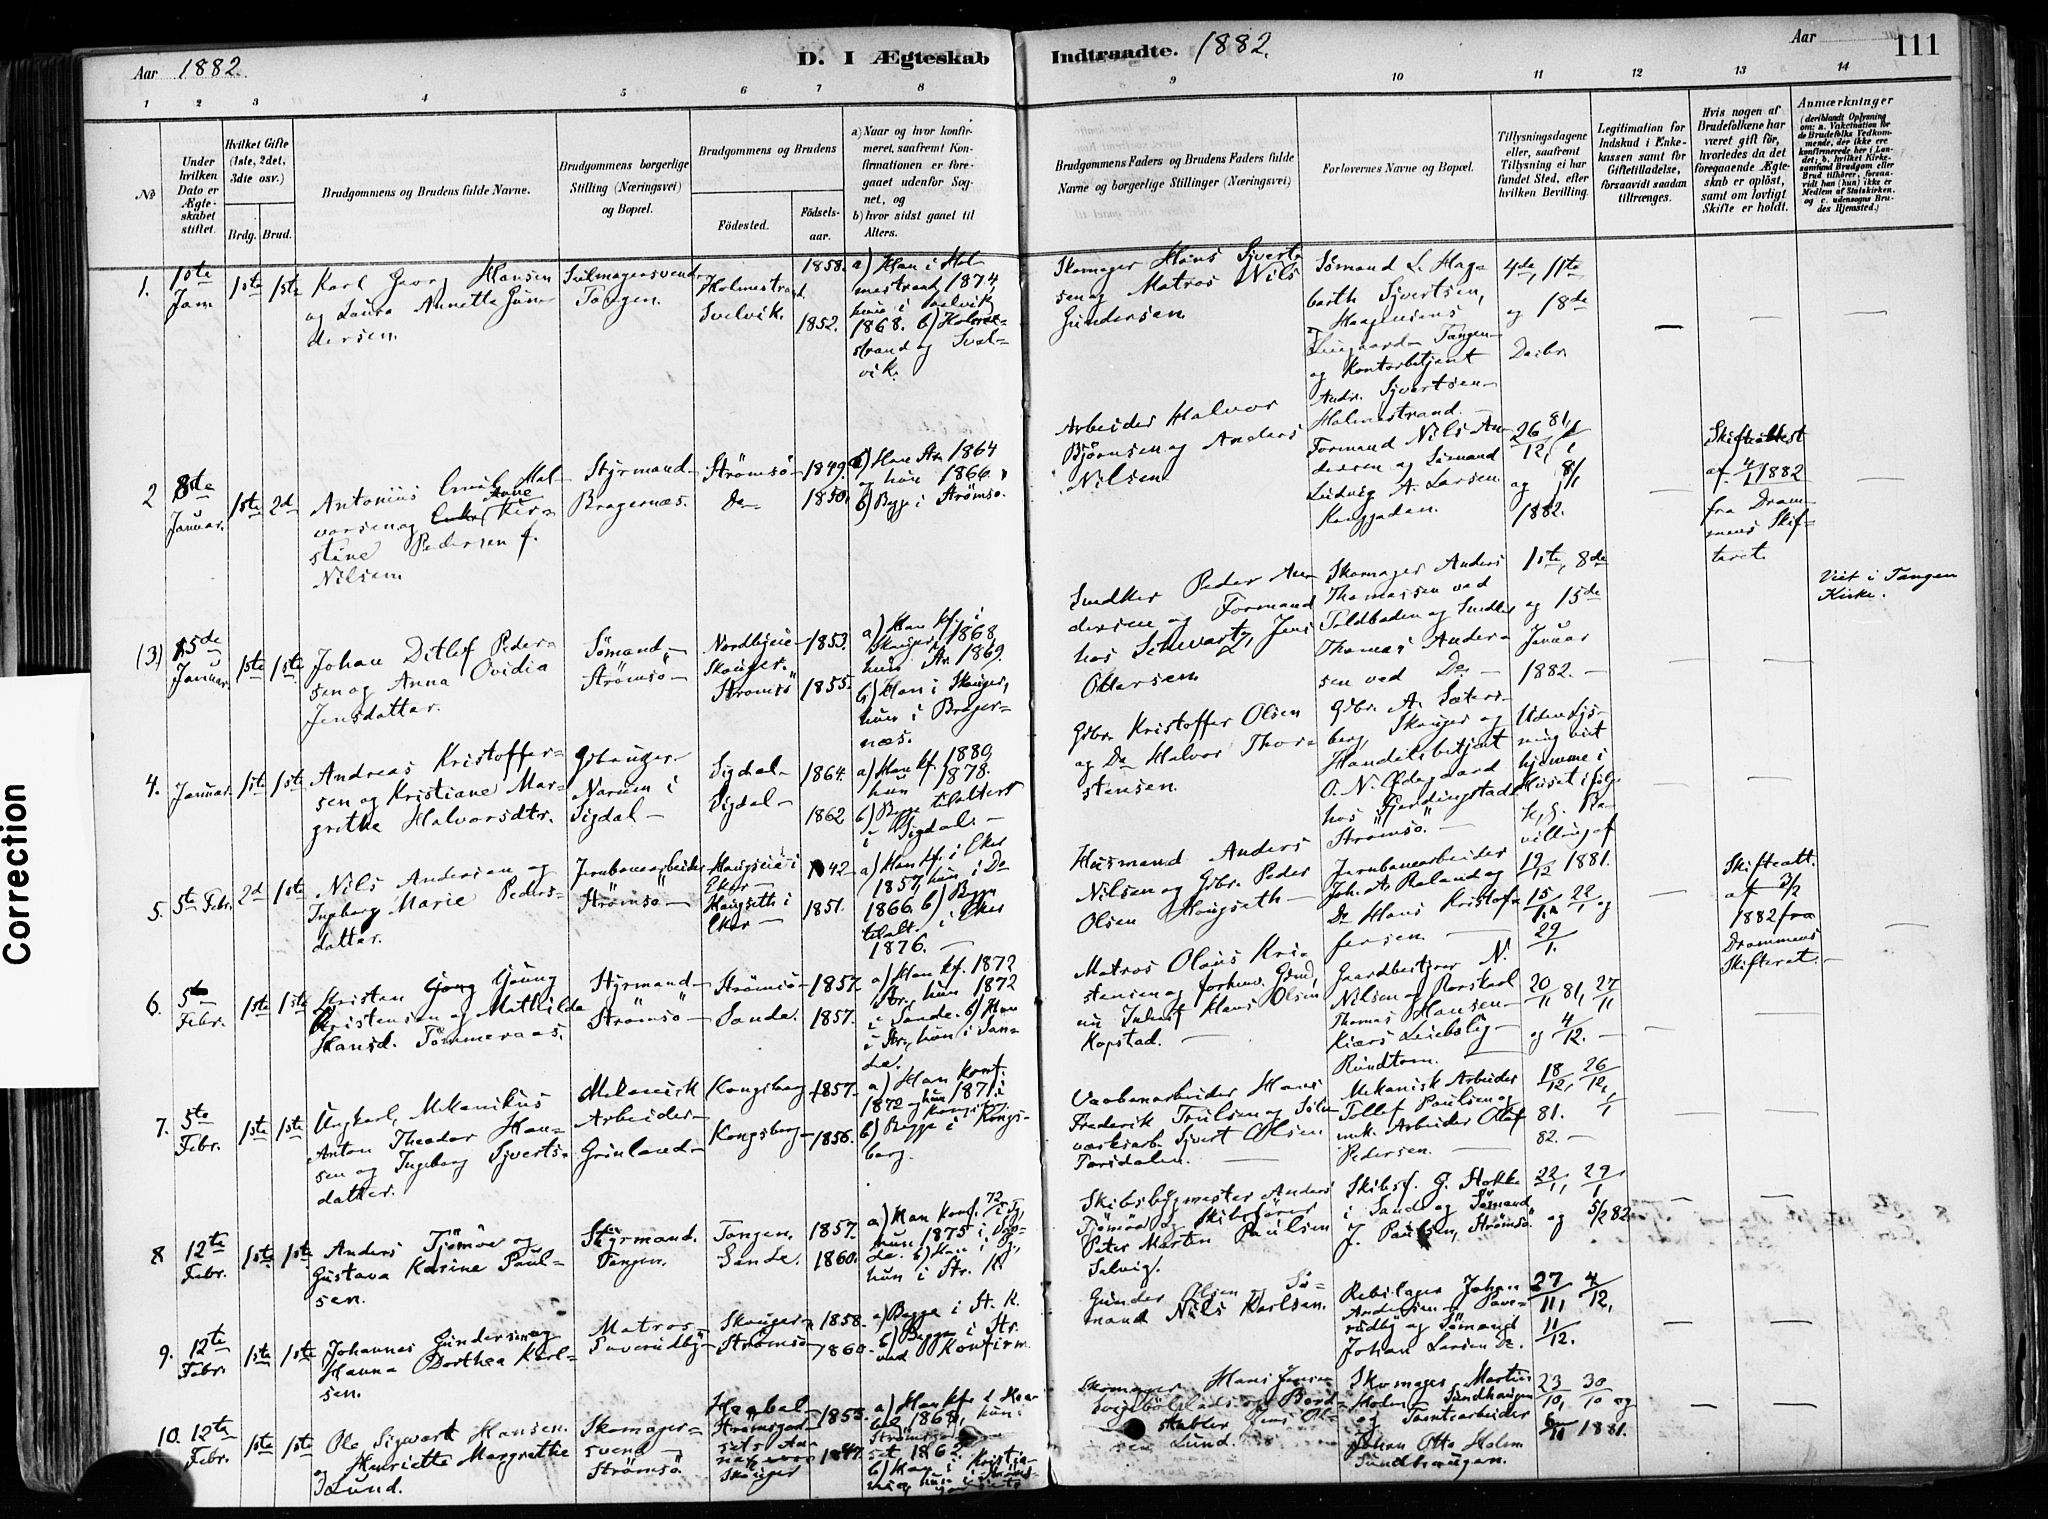 Aar 1882.
D. I Ægteskab
Indtraadte. 1882.
Aar
111
1 2 3 4 5 6 7 8
9 10 11 12 13 14
No
Under hvilken Dato er Ægteskabet stiftet.
Hvilket Gifte (1ste, 2det, 3die osv.)
Brdg. Brud.
Brudgommens og Brudens fulde Navne.
Brudgommens borgerlige Stilling (Næringsvei) og Bopæl.
Brudgommens og Brudens
Fødested.
Fødselsaar.
a) Naar og hvor konfirmeret, saafremt Konfirmationen er foregaaet udenfor Sognet, og
b) hvor sidst gaaet til Alters.
Brudgommens Faders og Brudens Faders fulde Navne og borgerlige Stillinger (Næringsvei)
Forlovernes Navne og Bopæl.
Tillysningsdagene eller, saafremt Tillysning ei har fundet Sted, efter hvilken Bevilling.
Legitimation for Indskud i Enkekassen samt for Giftetilladelse, forsaavidt saadan tiltrænges.
Hvis nogen af Brudefolkene har været gift før, hvorledes da det foregaaende Ægteskab er opløst, samt om lovligt Skifte er holdt.
Anmærkninger
(deriblandt Oplysning om: a. Vakcination for de Brudefolks Vedkommende, der ikke ere konfirmerede her i Landet; b. hvilket Kirkesamfund Brudgom eller Brud tilhører, forsaavidt han (hun) ikke er Medlem af Statskirken. og c. udensogns Brudes Hjemsted.)
1. 1ste Jan 1ste 1ste
Karl Georg Hansen
og Laura Annette Gundersen.
Tangen.
Holmestrand
Svelvik.
1858.
1852.
a) Han i Holmestrand 1874,
hun i Svelvik
1868. b) Holmestrand og Svelvik.
Skomager Hans Sjvertsen og Matros Nils
Gundersen
Sømand L. Hagbarth Sjvertsen,
Tangen
og Kontorbetjent
Andr. Sjvertsen
Holmestrand.
4de, 11te
og 18de
Decbr.
2 8de Januar. 1ste 2d
Antonius Emil Halvorsen og Anne Kirstine Pedersen f.
Nilsen
Styrmand
Bragernæs.
Strömsö
Do
1849.
1850.
a) Han Str. 1864
og hun 1866.
b) Begge i Strømsø.
Arbeider Halvor
Bjørnsen og Anders
Nilsen
Formand Nils Andersen og Sømand
Ludvig A. Larsen
Konggaden.
26/12 81, 1/1
og 8/1
1882.
Skifteattest
af 4/1 1882
fra Drammens Skifteret.
(3) 15de Januar. 1ste 1ste
Johan Ditlef Pedersen og Anna Ovidia
Jensdatter.
Sømand
Strømsø
Skouger.
Strömsö
1853.
1855.
a) Han kf. i
Skouger 1868,
hun Str. 1869.
b) Han i Skouger,
hun i Bragernæs.
Snedker Peder Andersen og Formand
hos Schwartz, Jens
Ottersen
Skomager Anders
Thomassen ved
Toldboden og Snedker
Thomas Andersen ved Do
1ste, 8de
og 15de
Januar
1882.
Viet i Tangen
Kirke.
4. Januar. 1ste 1ste
Andreas Kristoffersen og Kristiane Margrethe Halvorsdtr.
Gbruger
Narum i
Sigdal
Sigdal
Sigdal
1864.
1862
a) Han kf. 1880
hun 1878.
b) Begge tilalters
i Sigdal.
Gdbr. Kristoffer Olsen
og Do Halvor Thorstensen.
Gdbr. A. Sætersberg, Skouger og
Handelsbetjent
O. N. Ødegaard
hos Gjerdingstad
Strømsø.
viet
hjemme i
Huset ifølge
k. g. Bevilling af
12/12 1881.
5. 5te Febr. 2d 1ste
Nils Andersen og
Ingeborg Marie Pedersdatter.
Jernbanearbeider
Strömsø
Eker
Hougseth i
Eker
1842
1851.
a) Han kf. i Eker
1857, hun i Do
1866. b) Begge
tilalt. i Eker
1876.
Husmand Anders
Nilsen og Gdbr. Peder
Olsen Hougseth
Jernbanearbeider
Joh. A. Roland og
Do Hans Kristofersen.
15/1 22/1 og
29/1.
Skifteatt.
af 3/2
1882 fra
Drammens
Skifteret.
6. 5te Febr. 1ste 1ste
Kristian Georg
Kristensen og Mathilde
Hansd. Tömmeraas.
Styrmand
Strømsø
Strömsö
Sande.
1857.
1857.
a) Han kf. 1872
Str., hun 1872
i Sande. b) Han
i Str., hun i Sande.
Matros Olaus Kristensen og forhenv. Gmd,
nu Inderst Hans Olsen
Kopstad.
Gaardbestyrer N.
Nilsen
Thomas Hansen
Kiærs
Rundtom.
20/11 81, 27/11
og 4/12.
7. 5te Febr. 1ste 1ste
Ungkarl, Mekanikus
Anton Theodor Hansen og Ingeborg Sjvertsdatter.
Mekanisk
Arbeider
Grønland
Kongsberg
Kongsberg
1857.
1856.
a) Han konf.
1872 og hun 1871 i
Kongsb.
b) Begge i Kongsberg.
Vaabenarbeider Hans
Frederik Trulsen og Sølvværksarb. Sjvert Olsen
Torsdalen.
Mekanisk Arbeider
Tollef Paulsen og
mek. Arbeider Olaf
Pedersen.
18/12, 26/12,
81. 1/1
82.
8 12te Febr. 1ste 1ste
Anders Tjömöe og
Gustava Karine Paulsen.
Styrmand.
Tangen.
Tangen.
Sande.
1857.
1860.
a) Han konf. 72 i Tg,
hun 1875 i Sande. b) Han i Tg,
hun i Str. K.
Skibsbygmester Anders
Tjömöe og Skibsfører
Peter Marten Paulsen
Selvig.
Skibsf. G. Stokke
i Sande og Sømand
J. Paulsen, Strømsø
22/1, 29/1
og 5/2 82
9. 12te Febr. 1ste 1ste
Johannes Gundersen og
Hanna Dorthea Karlsen.
Matros
Skouger
Strömsø
1858.
1860.
a) Begge i St. K.
b) Begge i Str.
ved Konfirm.
Gunder Olsen og Sømand Nils Karlsen.
Rebslager Johan
Andersen
og Sømand
Johan Larsen Do.
27/11, 4/12,
11/12.
10. 12te Febr. 1ste 1ste
Ole Sigvart Hansen
og Henriette Margrethe
Lund.
Skomagersvend
Strömsö
Haabøl
Skouger
1855.
1847.
a) Han kf. i Haabøl 1868, hun
1862
b) Han i Kristiania og hun i Strøms
Skomager Hans Jensen
Jens Olsen Lund.
Skomager Martius
Holm, Sundhaugen
og Tomtearbeider
Johan Otto Holm
Sundhaugen.
23/10, 30/10 og
6/11 1881.
Correction